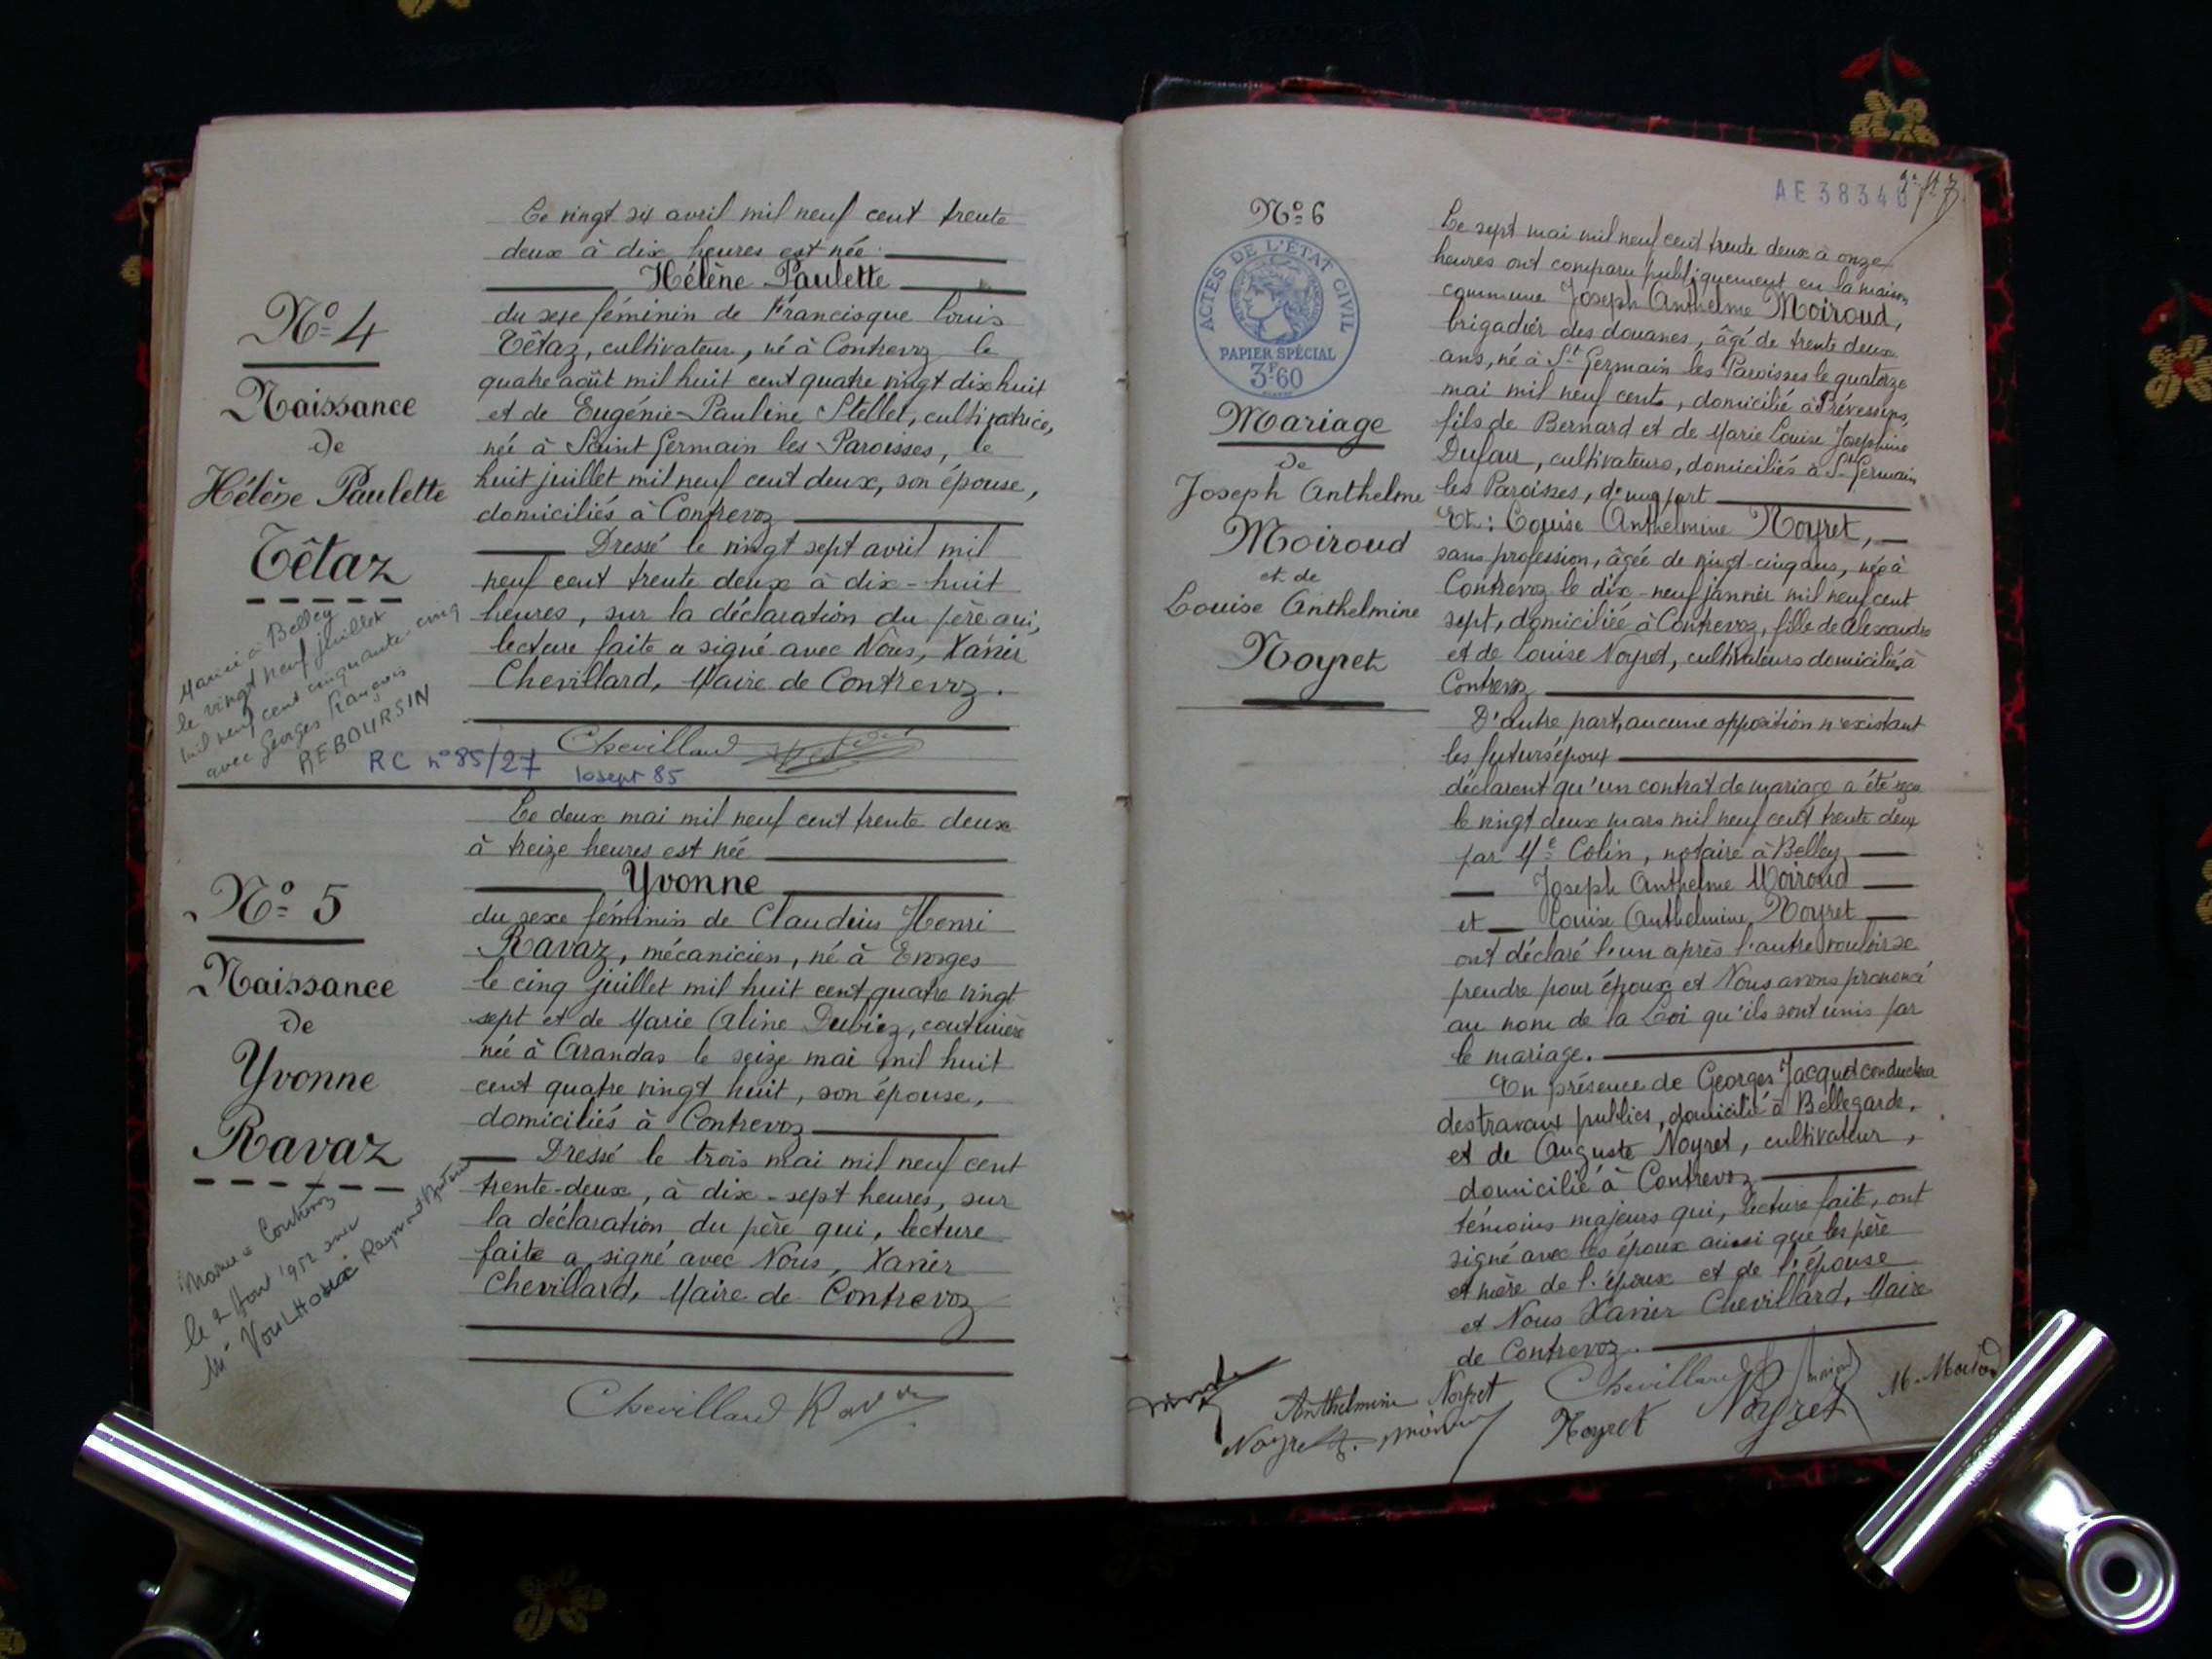 Le vingt six avril mil neuf cent trente
deux à dix heures est née
Hélène Paulette
du sexe féminin de Francisque Louis
Têtaz, cultivateur, né à Contrevoz le
quatre août mil huit cent quatre vingt dix huit
et de Eugénie-Pauline Stellet, cultivatrice,
née à Saint Germain les Paroisses, le
huit juillet mil neuf cent deux, son épouse,
domiciliés à Contrevoz
Dressé le vingt sept avril mil
neuf cent trente deux à dix-huit
heures, sur la déclaration du père qui,
lecture faite a signé avec Nous, Xavier
Chevillard, Maire de Contrevoz.
Chevillard
N° 4
Naissance
de
Hélène Paulette
Têtaz
Mariée à Belley
le vingt neuf juillet
mil neuf cent cinquante-cinq
avec Georges François
REBOURSIN
RC n° 85/27 10 sept 85
Le deux mai mil neuf cent trente deux
à treize heures est née
Yvonne
du sexe féminin de Claudius Henri
Ravaz, mécanicien, né à Evosges
le cinq juillet mil huit cent quatre vingt
sept et de Marie Aline Dubiez, couturière
née à Arandas le seize mai mil huit
cent quatre vingt huit, son épouse,
domiciliés à Contrevoz
Dressé le trois mai mil neuf cent
trente-deux, à dix-sept heures, sur
la déclaration du père qui, lecture
faite a signé avec Nous, Xavier
Chevillard, Maire de Contrevoz
Chevillard Ravaz
N° 5
Naissance
de
Yvonne
Ravaz
Mariée à Contrevoz
le 2 Aout 1952 avec
Mr VOULHOUX Raymond
AE 38340
N° 6
ACTES DE L'ÉTAT CIVIL
PAPIER SPÉCIAL
3F.60
Mariage
de
Joseph Anthelme
Moiroud
et de
Louise Anthelmine
Noyret
Le sept mai mil neuf cent trente deux à onze
heures ont comparu publiquement en la maison
commune Joseph Anthelme Moiroud,
brigadier des douanes, âgé de trente deux
ans, né à St Germain les Paroisses le quatorze
mai mil neuf cent, domicilié à Prévessins,
fils de Bernard et de Marie Louise Joséphine
Dufour, cultivateurs, domiciliés à St Germain
les Paroisses, d'une part
Et : Louise Anthelmine Noyret,
sans profession, âgée de vingt-cinq ans, née à
Contrevoz le dix-neuf janvier mil neuf cent
sept, domiciliée à Contrevoz, fille de Alexandre
et de Louise Noyret, cultivateurs domiciliés à
Contrevoz
D'autre part, aucune opposition n'existant
les futurs époux
déclarent qu'un contrat de mariage a été reçu
le vingt deux mars mil neuf cent trente deux
par Me Colin, notaire à Belley
Joseph Anthelme Moiroud
et Louise Anthelmine Noyret
ont déclaré l'un après l'autre vouloir se
prendre pour époux et Nous avons prononcé
au nom de la Loi qu'ils sont unis par
le mariage.
En présence de Georges Jacquet conducteur
des travaux publics, domicilié à Bellegarde,
et de Auguste Noyret, cultivateur,
domicilié à Contrevoz
témoins majeurs qui, lecture faite, ont
signé avec les époux ainsi que les père
et mère de l'époux et de l'épouse
et Nous Xavier Chevillard, Maire
de Contrevoz.
Anthelmine Noyret Chevillard M. Moiroud
Noyret Noyret Noyret